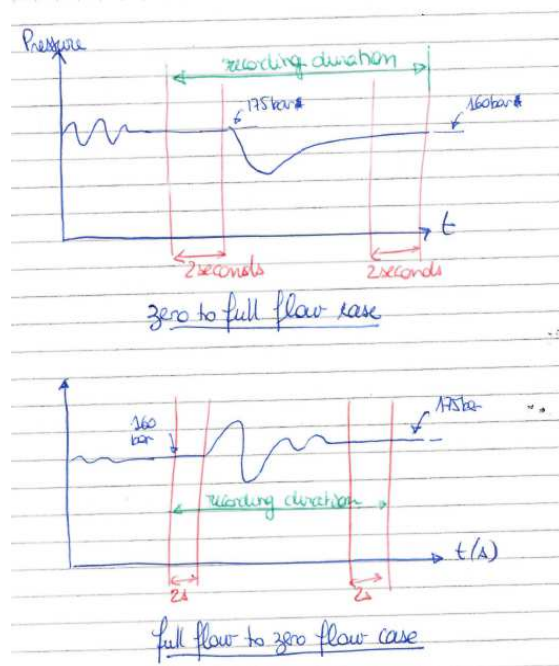 Pressure
recording duration
175bar
160bar
t
2seconds
2seconds
zero to full flow case
160
bar
175bar
recording duration
t(s)
2s
2s
full flow to zero flow case